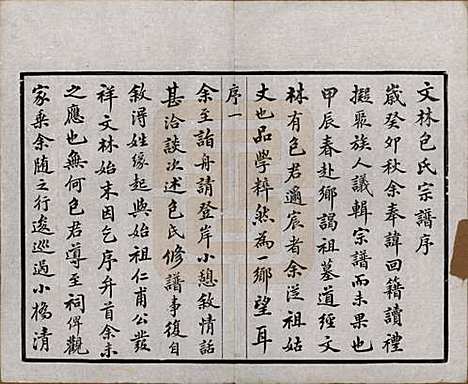 文林包氏宗譜序
歲癸卯秋余奉諱回籍讀禮
擬聚族人議輯宗譜而未果也
甲辰春赴鄉謁祖墓道經文
林有包君遹宸者余從祖姑
丈也品學粹然為一鄉望耳
序一
余至詣舟請登岸小憩敘情話
甚洽談次述包氏修譜事復自
敘得姓緣起與始祖仁甫公發
祥文林始末因乞序弁首余未
之應也無何包君導至祠俾觀
家乘余隨之行逡巡過小橋清